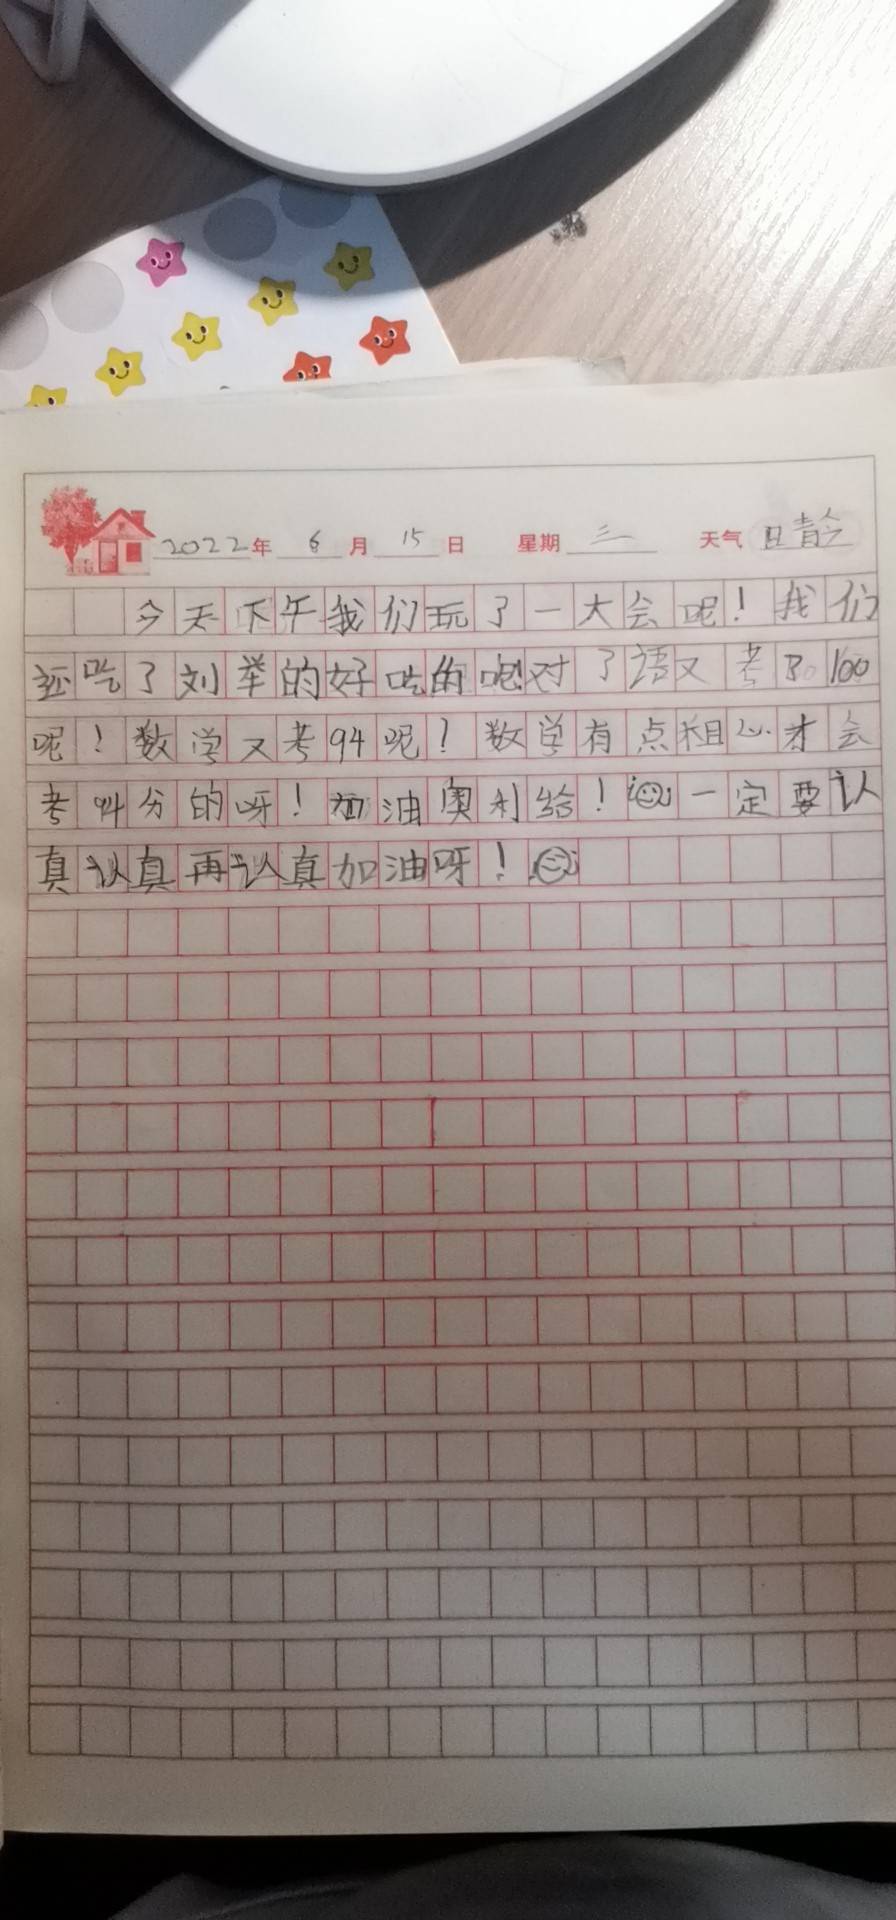 2022年 6月 15日 星期 三 天气 晴
今天下午我们玩了一大会呢！我们
还吃了刘举的好吃的呢对了语又考了100
呢！数学又考94呢？数学有点粗心才会
考94分的呀！加油奥利给！一定要认
真认真再认真加油呀！